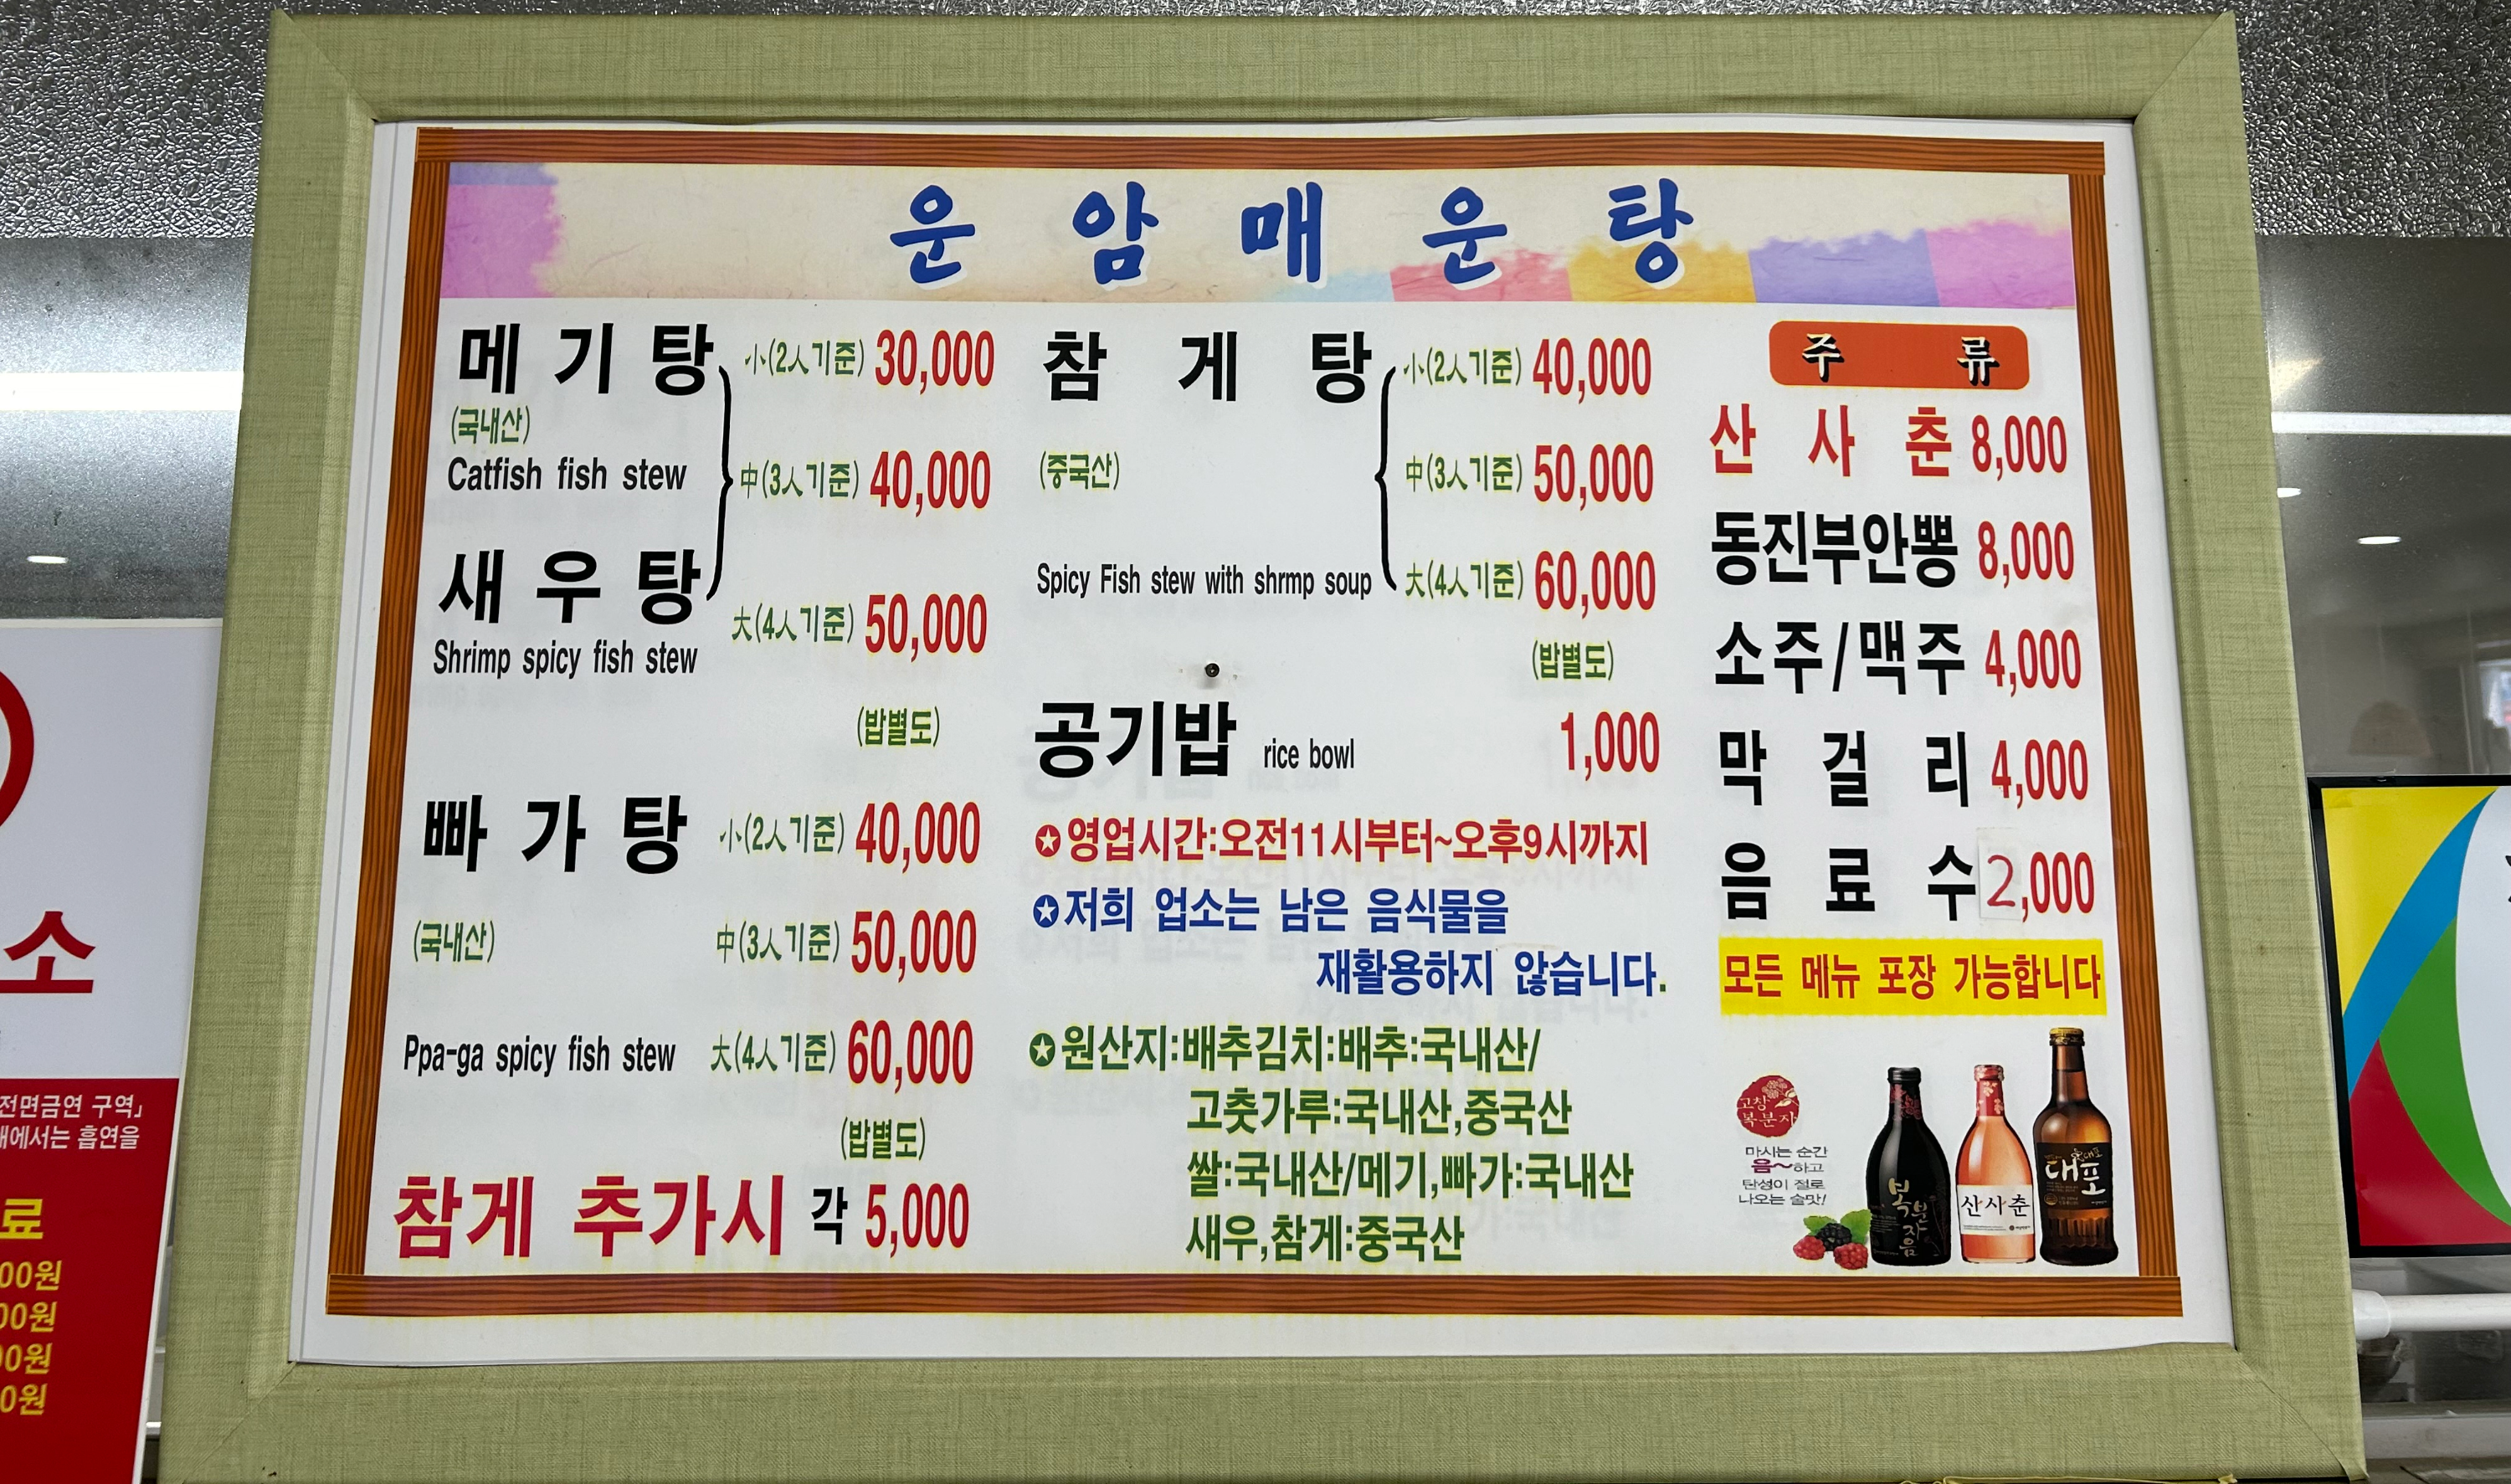 운암매운탕
메기탕 小(2人기준) 30,000
(국내산)
Catfish fish stew
中(3人기준) 40,000
새우탕
Shrimp spicy fish stew
大(4人기준) 50,000
(밥별도)
빠가탕 小(2人기준) 40,000
(국내산) 中(3人기준) 50,000
Ppa-ga spicy fish stew 大(4人기준) 60,000
(밥별도)
참게 추가시 각 5,000
참게탕 小(2人기준) 40,000
(중국산) 中(3人기준) 50,000
Spicy Fish stew with shrmp soup 大(4人기준) 60,000
(밥별도)
공기밥 rice bowl 1,000
✪영업시간:오전11시부터~오후9시까지
✪저희 업소는 남은 음식물을
재활용하지 않습니다.
✪원산지:배추김치:배추:국내산/
고춧가루:국내산,중국산
쌀:국내산/메기,빠가:국내산
새우,참게:중국산
주류
산사춘 8,000
동진부안뽕 8,000
소주/맥주 4,000
막걸리 4,000
음료수 2,000
모든 메뉴 포장 가능합니다
고창
복분자
마시는 순간
음~하고
탄성이 절로
나오는 술맛!
복분자음
산사춘
대포
소
전면금연 구역」
에서는 흡연을
료
00원
00원
00원
0원